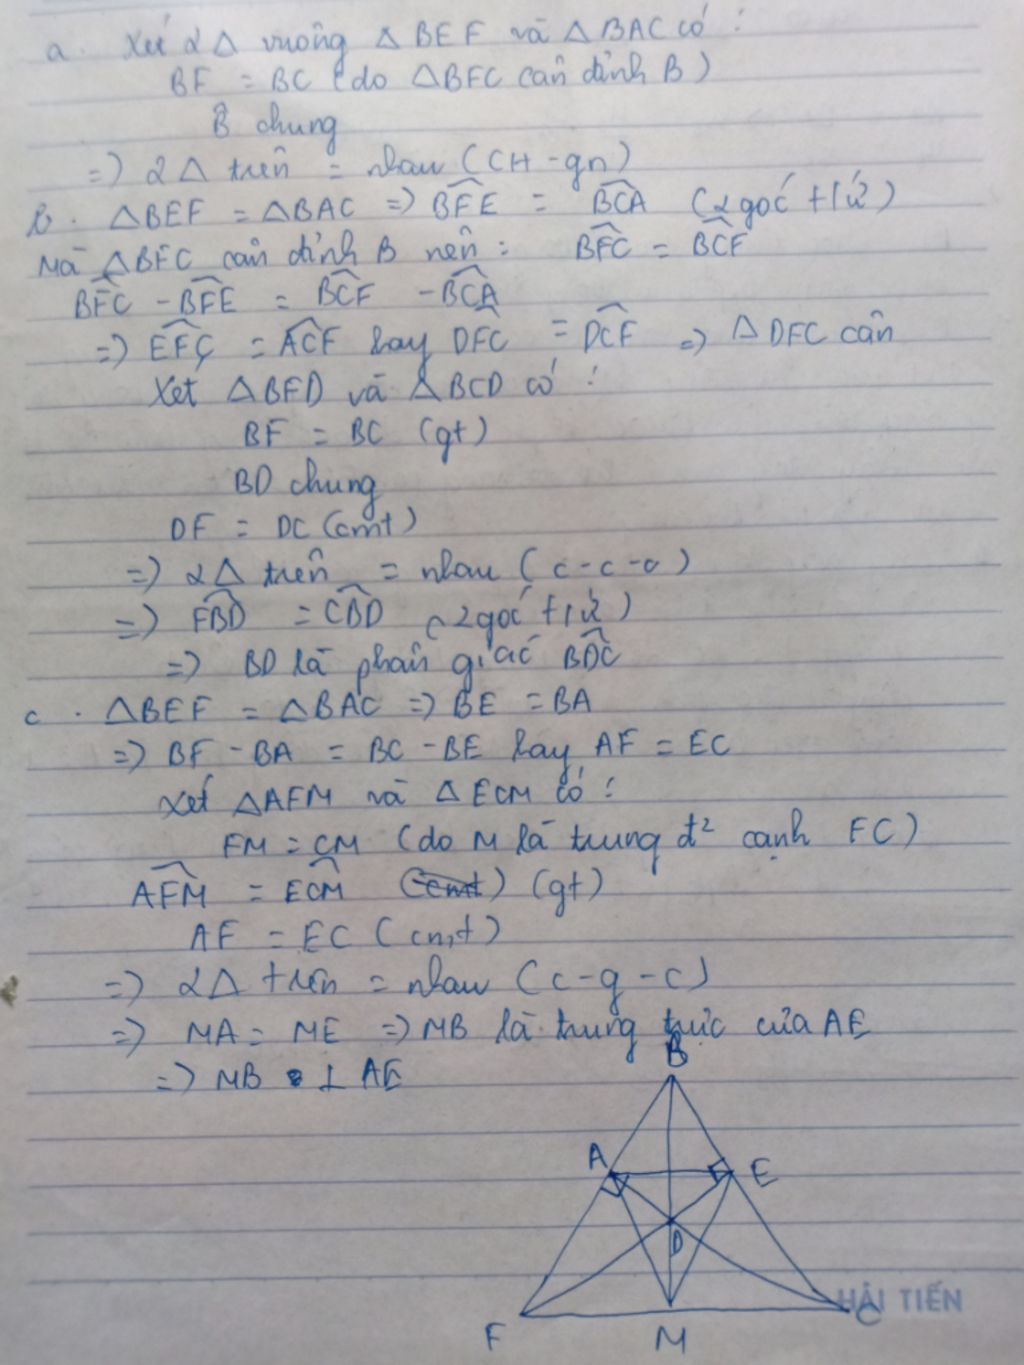 a. Xét 2Δ vuông ΔBEF và ΔBAC có:
BF = BC (do ΔBFC cân đỉnh B)
B̂ chung
=> 2Δ trên = nhau (CH-gn)
b. ΔBEF = ΔBAC => BFE = BCA (2 góc t/ứ)
Mà ΔBFC cân đỉnh B nên: BFC = BCF
BFC - BFE = BCF - BCA
=> EFC = ACF hay DFC = DCF => ΔDFC cân
Xét ΔBFD và ΔBCD có:
BF = BC (gt)
BD chung
DF = DC (cmt)
=> 2Δ trên = nhau (c-c-c)
=> FBD = CBD (2 góc t/ứ)
=> BD là phân giác BDC
c. ΔBEF = ΔBAC => BE = BA
=> BF - BA = BC - BE hay AF = EC
Xét ΔAFM và ΔECM có:
FM = CM (do M là trung đ² cạnh FC)
AFM = ECM (cmt) (gt)
AF = EC (cmt)
=> 2Δ trên = nhau (c-g-c)
=> MA = ME => MB là trung trực của AE
=> MB ⊥ AE
B
A E
D
HẢI TIẾN
F M C